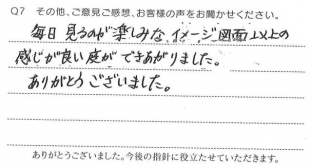 Q7 その他、ご意見ご感想、お客様の声をお聞かせください。
毎日見るのが楽しみな、イメージ図面上以上の
感じが良い庭ができあがりました。
ありがとうございました。
ありがとうございました。今後の指針に役立たせていただきます。